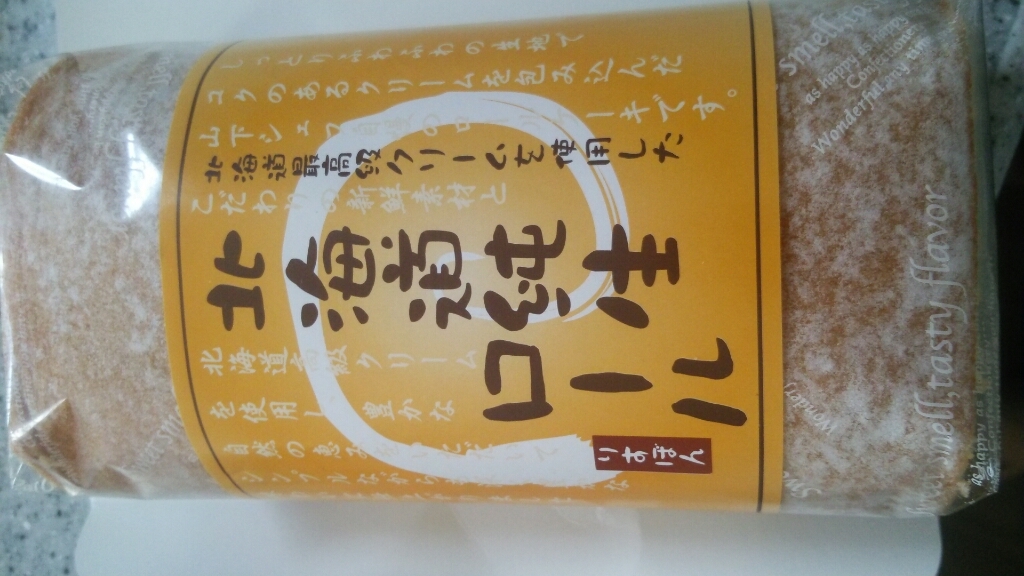 しっとりふわふわの生地で
コクのあるクリームを包み込んだ
山下シェフ自慢のロールケーキです。
北海道最高級クリームを使用した
こだわりの新鮮素材と
北海道純生
ロール
りすぼん
北海道高級クリーム
を使用し 豊かな
自然の恵みをいただいて
シンプルながら
Smell,
as Happy as
Confectione
Wonderful party with
Sweet smell,tasty flavor
as happy